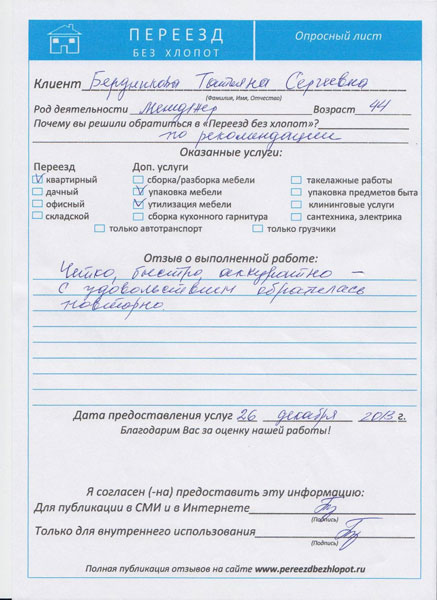 ПЕРЕЕЗД
БЕЗ ХЛОПОТ
Опросный лист
Клиент Бердникова Татьяна Сергеевна
(Фамилия, Имя, Отчество)
Род деятельности менеджер Возраст 44
Почему вы решили обратиться в «Переезд без хлопот»?
по рекомендации
Оказанные услуги:
Переезд Доп. услуги
квартирный сборка/разборка мебели такелажные работы
дачный упаковка мебели упаковка предметов быта
офисный утилизация мебели клининговые услуги
складской сборка кухонного гарнитура сантехника, электрика
только автотранспорт только грузчики
Отзыв о выполненной работе:
Четко, быстро, аккуратно –
с удовольствием обратилась
повторно.
Дата предоставления услуг 26 декабря 2013 г.
Благодарим Вас за оценку нашей работы!
Я согласен (-на) предоставить эту информацию:
Для публикации в СМИ и в Интернете
(Подпись)
Только для внутреннего использования
(Подпись)
Полная публикация отзывов на сайте www.pereezdbezhlopot.ru